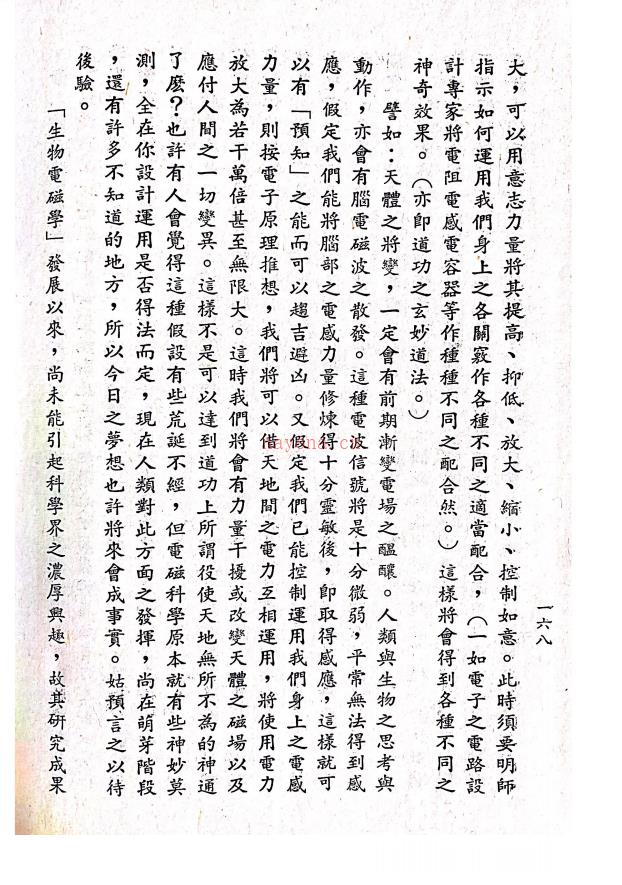 大，可以用意志力量將其提高、抑低、放大、縮小、控制如意。此時須要明師
指示如何運用我們身上之各關竅作各種不同之適當配合，（一如電子之電路設
計專家將電阻電感電容器等作種種不同之配合然。）這樣將會得到各種不同之
神奇效果。（亦卽道功之玄妙道法。）
譬如：天體之將變，一定會有前期漸變電場之醞釀。人類與生物之思考與
動作，亦會有腦電磁波之散發。這種電波信號將是十分微弱，平常無法得到感
應，假定我們能將腦部之電感力量修煉得十分靈敏後，卽取得感應，這樣就可
以有「預知」之能而可以趨吉避凶。又假定我們已能控制運用我們身上之電感
力量，則按電子原理推想，我們將可以借天地間之電力互相運用，將使用電力
放大為若干萬倍甚至無限大。這時我們將會有力量干擾或改變天體之磁場以及
應付人間之一切變異。這樣不是可以達到道功上所謂役使天地無所不為的神通
了麽？也許有人會覺得這種假設有些荒誕不經，但電磁科學原本就有些神妙莫
測，全在你設計運用是否得法而定，現在人類對此方面之發揮，尚在萌芽階段
，還有許多不知道的地方，所以今日之夢想也許將來會成事實。姑預言之以待
後驗。
「生物電磁學」發展以來，尚未能引起科學界之濃厚興趣，故其研究成果
一六八